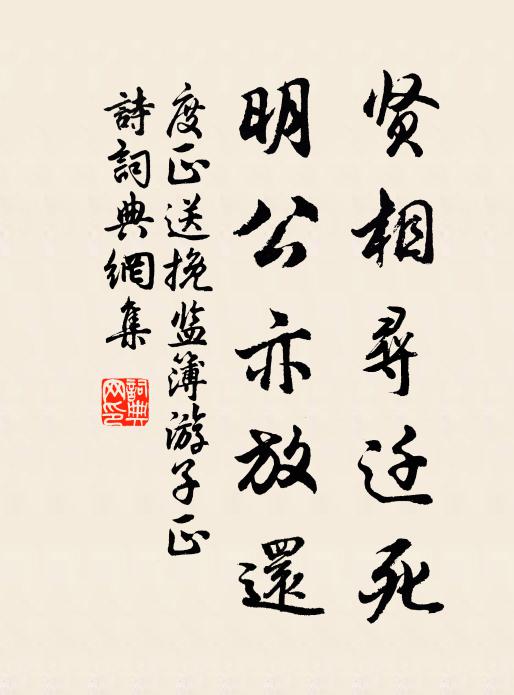 贤相寻迁死
明公亦放還
度正送挽监簿游子正
詩詞典網集
詞典网印